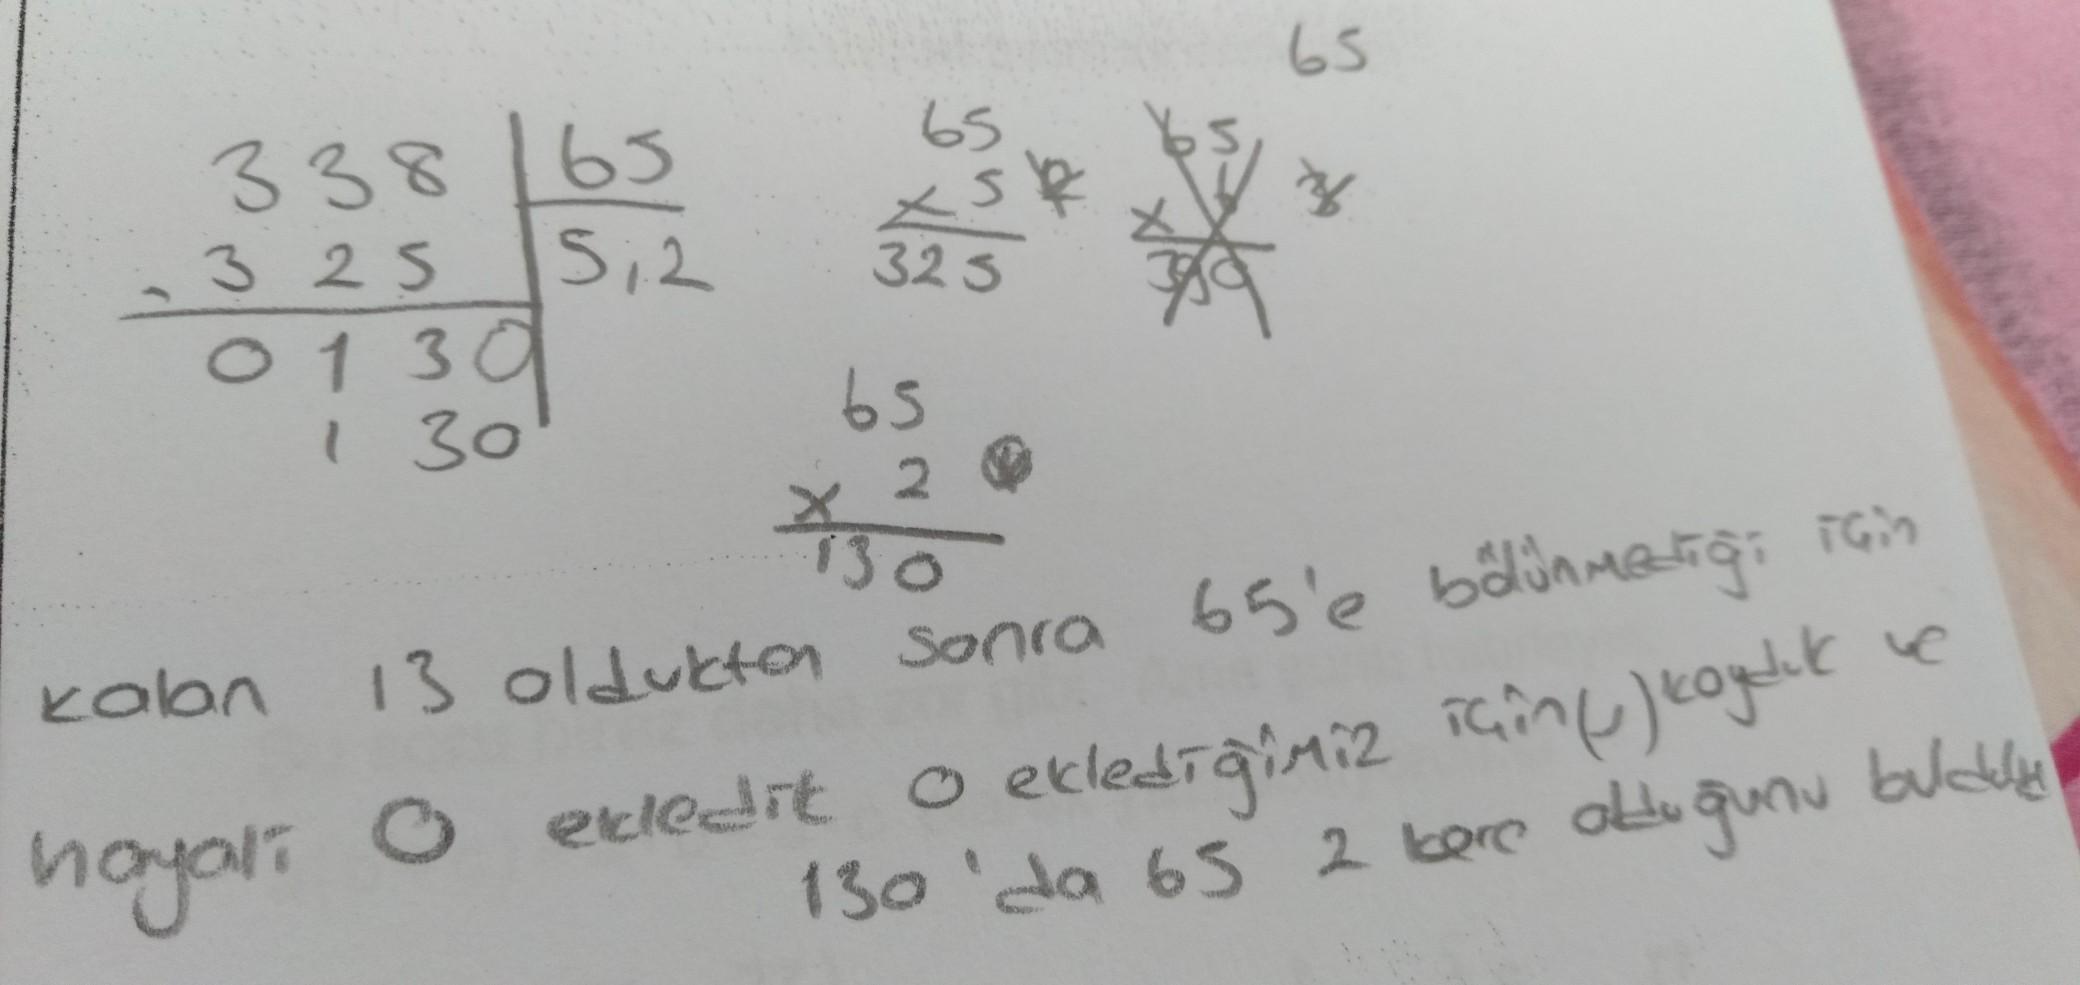 65
338 | 65
- 325 | 5,2
0130
130
65
x 5
325
65
x 6
390
65
x 2
130
kalan 13 olduktan sonra 65'e bölünmediği için
hayali 0 ekledik 0 eklediğimiz için (,) koyduk ve
130'da 65 2 kere olduğunu bulduk